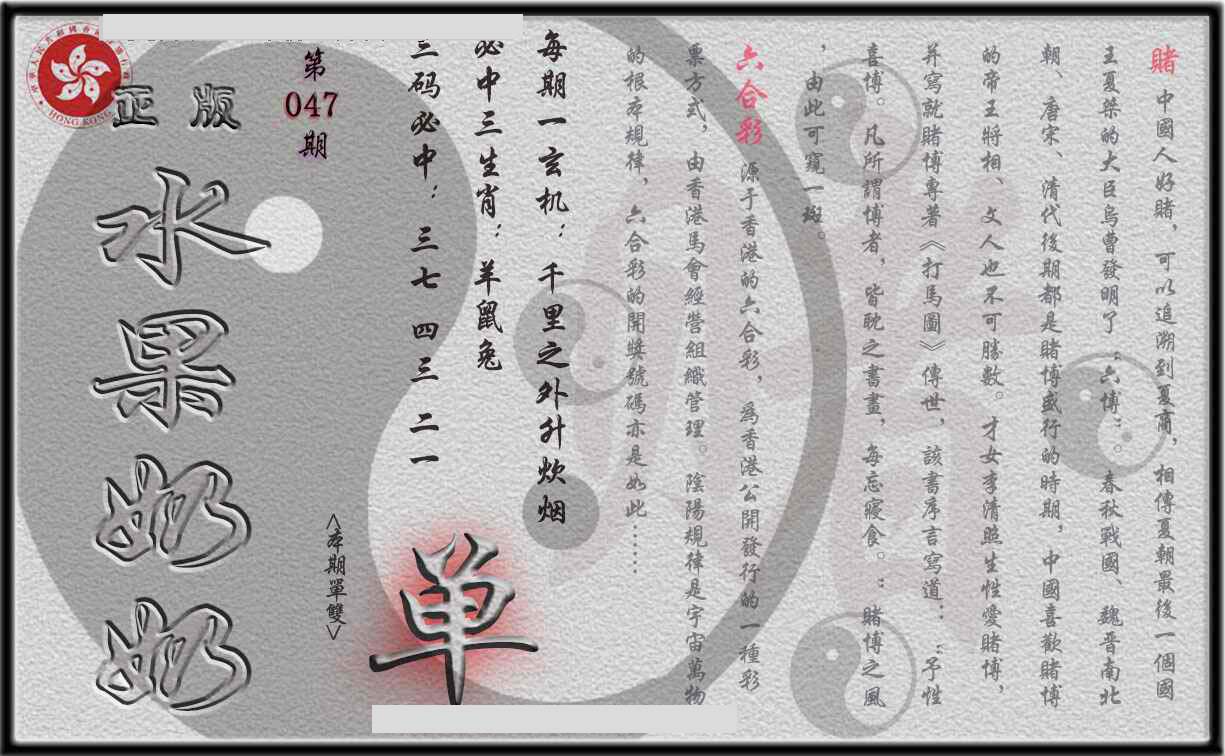 賭 中國人好賭，可以追溯到夏商，相傳夏朝最後一個國
王夏桀的大臣烏曹發明了“六博”。春秋戰國、魏晋南北
朝、唐宋、清代後期都是賭博盛行的時期，中國喜歡賭博
的帝王將相、文人也不可勝數。才女李清照生性愛賭博，
并寫就賭博專著《打馬圖》傳世，該書序言寫道：“予性
喜博。凡所謂博者，皆耽之晝畫，每忘寢食。”賭博之風
，由此可窺一斑。
六合彩 源于香港的六合彩，爲香港公開發行的一種彩
票方式，由香港馬會經營組織管理。陰陽規律是宇宙萬物
的根本規律，六合彩的開獎號碼亦是如此……
每期一玄机：千里之外升炊烟
必中三生肖：羊鼠兔
三码必中：三七 四三 二一
第
047
期
<本期單雙>
单
正版
水果奶奶
HONG KONG